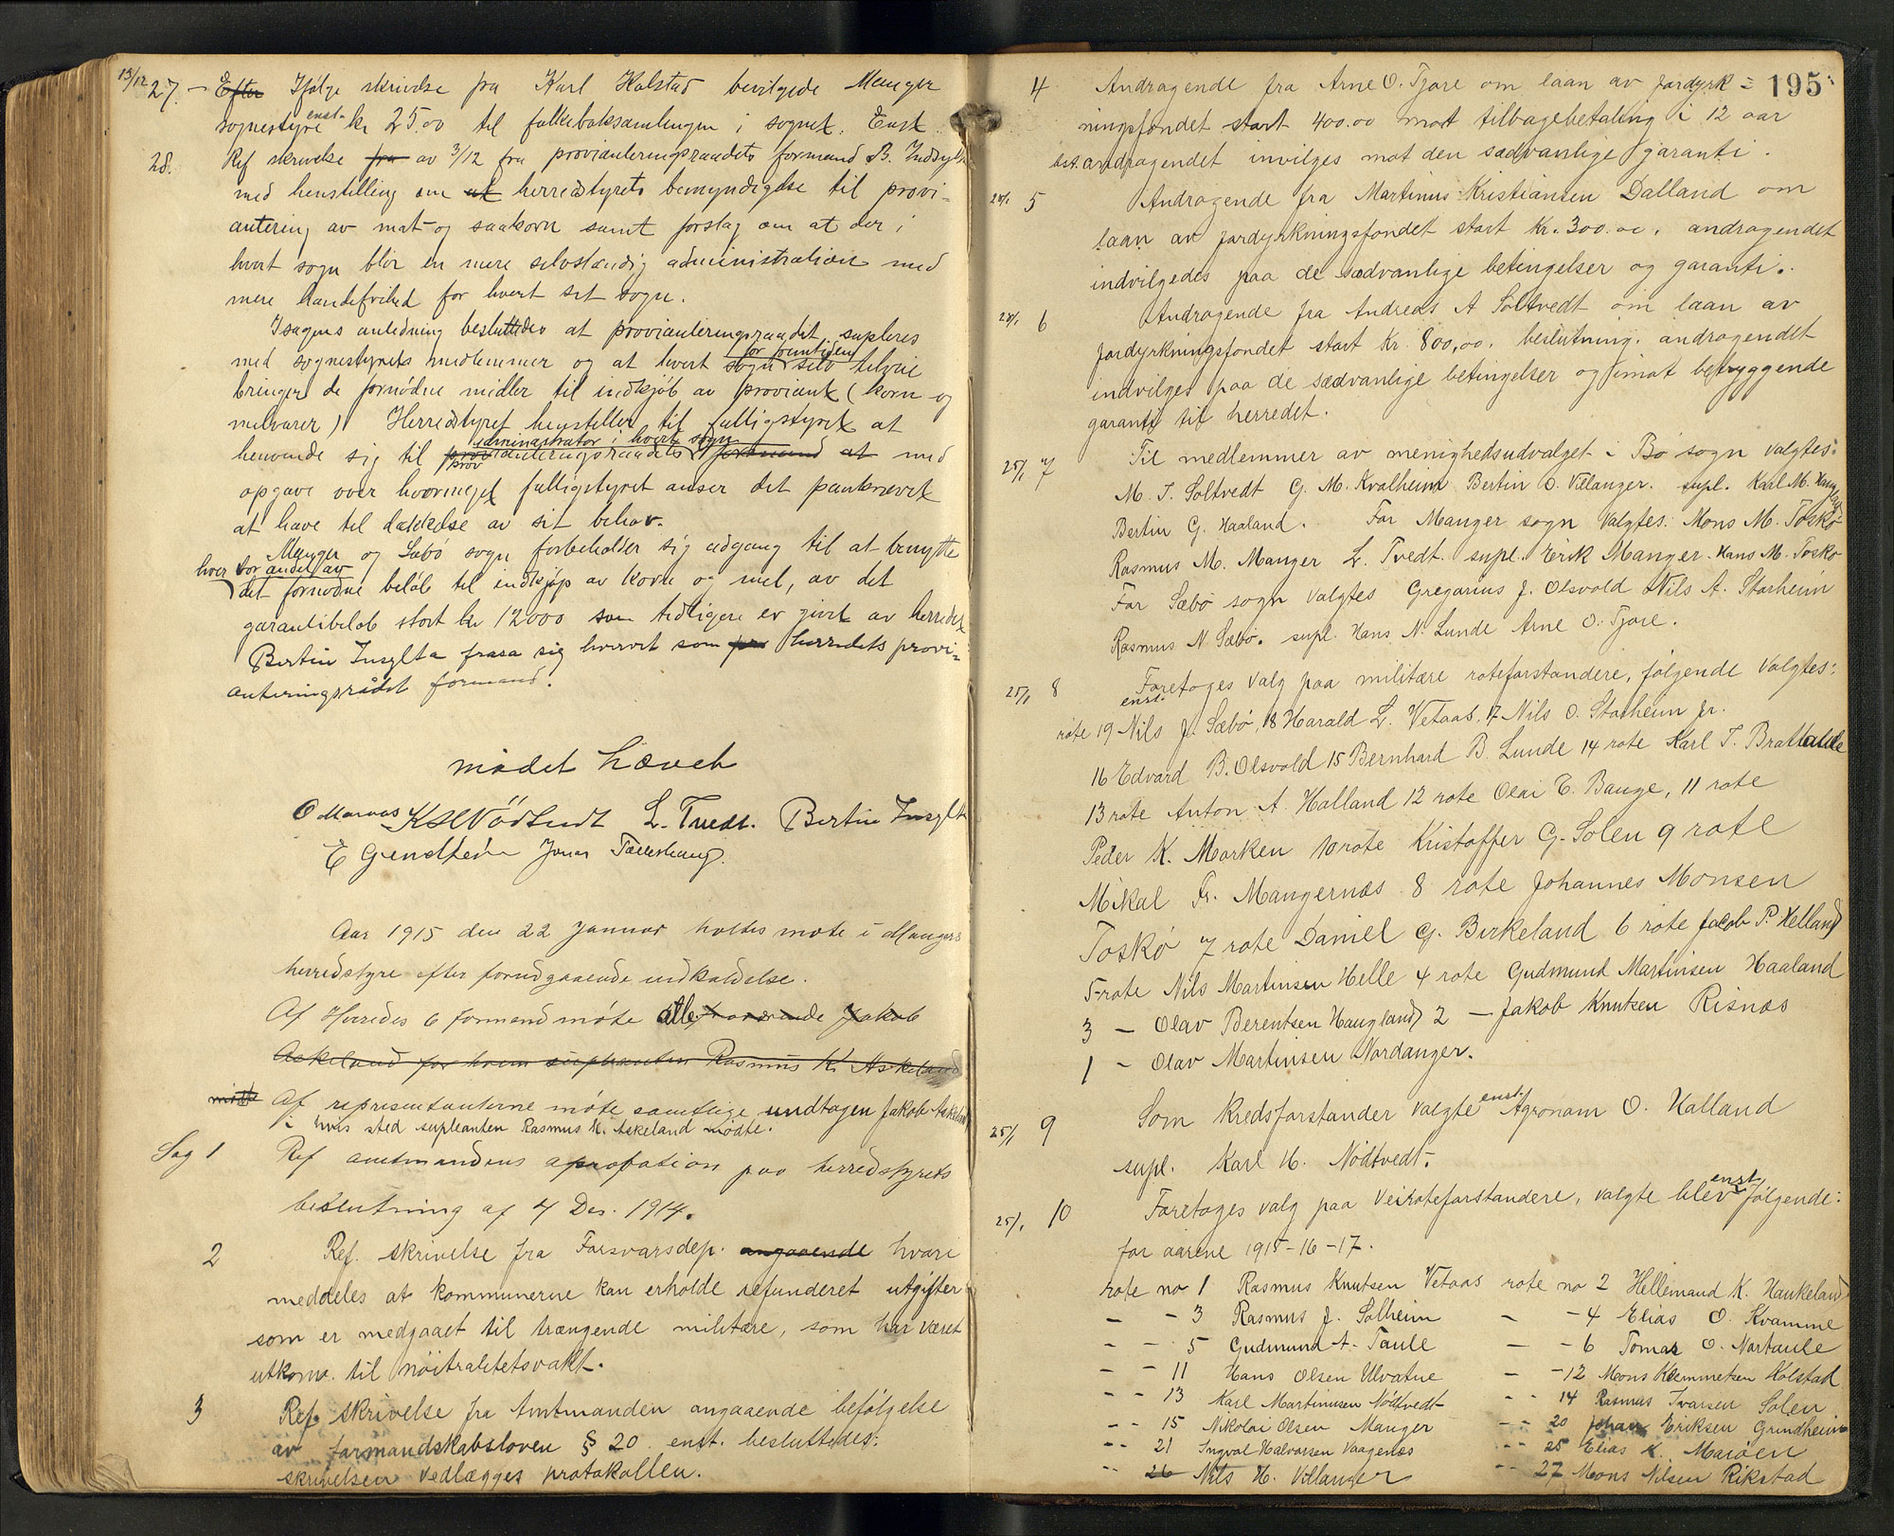 13/12 27. - Efter Ifølge skrivelse fra Karl Kolstad bevilgede Manger
sognestyre enst. kr 25.00 til folkeboksamlingen i sognet. Enst.
28. Ref skrivelse fra av 3/12 fra provianteringsraadets formand B.
med henstilling om at herredstyrets bemyndigelse til provi-
antering av mat- og saakorn samt forslag om at der i
hvert sogn blir en mere selvstændig administration med
mere handefrihed for hvert sit sogn.
I sagens anledning besluttedes at provianteringsraadet supleres
med sognestyrets medlemmer og at hvert sogn selv tilveie
bringer de fornødne midler til indkjøb av proviant (korn og
melvarer) Herredstyret henstiller til fattigstyret at
administrator i hvert sogn
henvende sig til provianteringsraadets formand at med
opgave over hvormeget fattigstyret anser det paakrævet
at have til dækkelse av sit behov.
Manger og Sæbø sogn forbeholder sig adgang til at benytte
hver vor andel av
det fornødne beløb til indkjøp av korn og mel, av det
garantibeløb stort kr 12000 som tidligere er givet av herredet
Bertin Insylta frasa sig hvervet som herredets provi-
anteringsrådet formand.
mødet hævet
O Marøas K H Nödtvedt L. Tvedt. Bertin Insylta
E Grindheim Jonas
Aar 1915 den 22 Januar holtes møte i Mangers
herredstyre efter forudgaaende indkaldelse.
Af Herredes 6 formænd møte alle fraværende Jakob
Askeland for hvem supleanten Rasmus K. Askeland
møtte Af representanterne møte samtlige undtagen Jakob Askeland
i hvis sted supleanten Rasmus K. Askeland mødte.
Sag 1 Ref amtmandens aprobation paa herredstyrets
beslutning af 4 Des. 1914.
2 Ref. skrivelse fra Forsvarsdep. angaaende hvori
meddeles at kommunerne kan erholde refunderet utgifter
som er medgaaet til trængende militære, som har været
utkom. til nøitralitetsvakt.
3 Ref. skrivelse fra Amtmanden angaaende befølgelse
av formandskabsloven § 20. enst. besluttedes:
skrivelsen vedlægges protokollen.
195
4 Andragende fra Arne O. Tjore om laan av jordyrk-
ningsfondet stort 400.00 mot tilbagebetaling i 12 aar
best. andragendet invilges mot den sædvanlige garanti.
24/1 5 Andragende fra Martinus Kristiansen Dalland om
laan av jordyrkningsfondet stort Kr. 300.00. andragendet
indvilgedes paa de sædvanlige betingelser og garanti.
24/1 6 Andragende fra Andreas A Soltvedt om laan av
jordyrkningsfondet stort Kr. 800,00. beslutning. andragendet
indvilges paa de sædvanlige betingelser og imot betryggende
garanti til herredet.
25/1 7 Til medlemmer av menighedsudvalget - Bø sogn valgtes:
M. J. Soltvedt G. M. Kvalheim Bertin O. Vilanger. supl. Karl M. Haugland
Bertin G. Haaland. For Manger sogn valgtes: Mons M. Toskø
Rasmus M. Manger L. Tvedt. supl. Erik Manger. Hans M. Toskø
For Sæbø sogn valgtes Gregorius J. Olsvold Nils A. Storheim
Rasmus N Sæbø. supl. Hans N. Lunde Arne O. Tjore.
25/1 8 Foretoges valg paa militære roteforstandere, følgende valgtes:
enst.
rote 19 Nils J. Sæbø, 18 Harald L. Vetaas, 17 Nils O. Storheim jr.
16 Edvard B. Olsvold 15 Bernhard B. Lunde 14 rote Karl T. Brattatule
13 rote Anton A. Holland 12 rote Olai E. Bauge, 11 rote
Peder K. Morken 10 rote Kristoffer G. Solen 9 rote
Mikal Fr. Mangernæs 8 rote Johannes Monsen
Toskø 7 rote Daniel G. Birkeland 6 rote Jacob P. Helland
5 rote Nils Martinsen Helle 4 rote Gudmund Martinsen Haaland
3 - Olav Berentsen Haugland 2 - Jakob Knutsen Risnæs
1 - Olav Martinsen Nordanger.
25/1 9 Som Kredsforstander valgte enst. Agronom O. Halland
supl. Karl H. Nödtvedt.
25/1 10 Foretoges valg paa Veiroteforstandere, valgte blev enst. følgende:
for aarene 1915-16-17.
rote no 1 Rasmus Knutsen Vetaas rote no 2 Hellemand K. Haukeland
- - 3 Rasmus J. Solheim - - 4 Elias O. Kvamme
- - 5 Gudmund A. Taule - - 6 Tomas O. Nortaule
- - 11 Hans Olsen Ulvatne - - 12 Mons Klemmetsen Kolstad
- - 13 Karl Martinusen Nödtvedt - - 14 Rasmus Ivarsen Solen
- - 15 Nikolai Olsen Manger - - 20 Johan Eriksen Grindheim
- - 21 Ingval Halvorsen Vaagenæs - - 25 Elias K. Marøen
- - 26 Nils H. Villanger - - 27 Mons Nilsen Rikstad